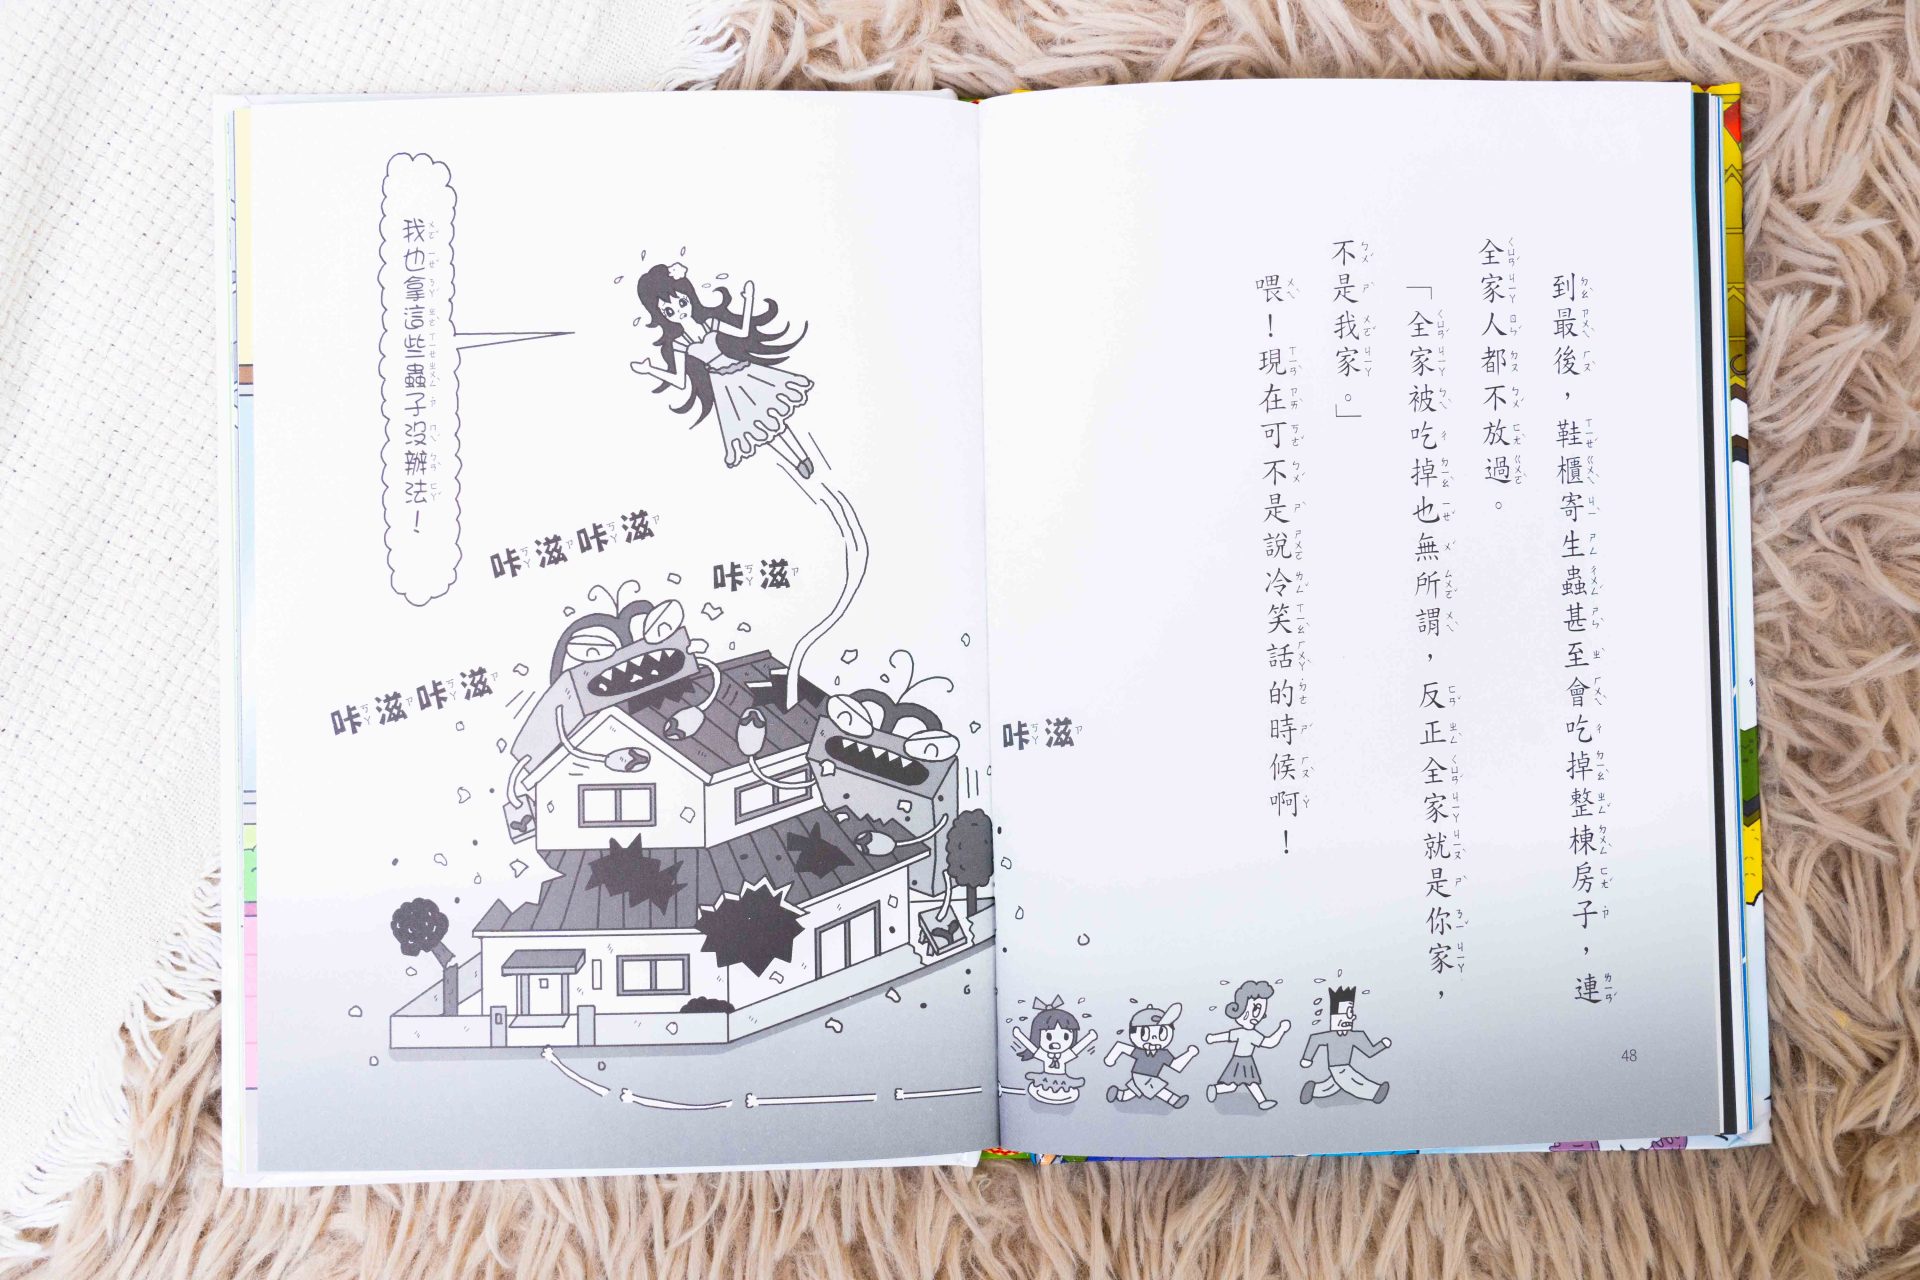 到最後，鞋櫃寄生蟲甚至會吃掉整棟房子，連
全家人都不放過。
「全家被吃掉也無所謂，反正全家就是你家，
不是我家。」
喂！現在可不是說冷笑話的時候啊！
48
咔滋
我也拿這些蟲子沒辦法！
咔滋咔滋
咔滋
咔滋咔滋